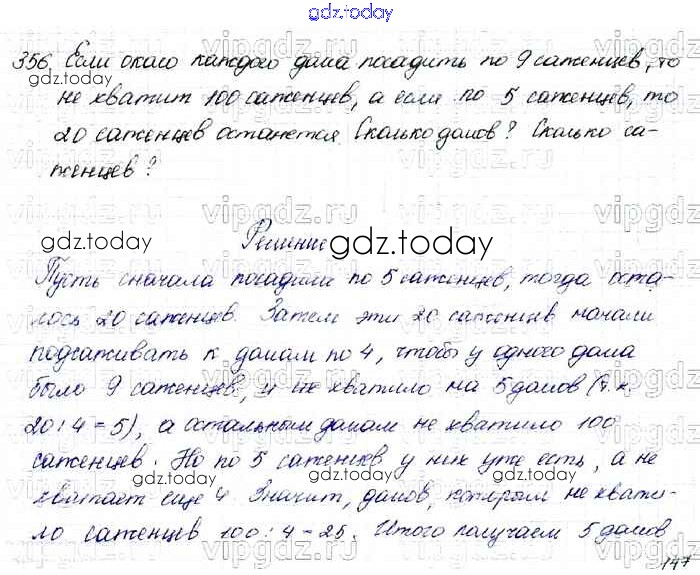 gdz.today
356. Если около каждого дома посадить по 9 саженцев, то
не хватит 100 саженцев, а если по 5 саженцев, то
20 саженцев останется. Сколько домов? Сколько са-
женцев?
Решение
Пусть сначала посадили по 5 саженцев, тогда оста-
лось 20 саженцев. Затем эти 20 саженцев начали
подсаживать к домам по 4, чтобы у одного дома
было 9 саженцев, и их хватило на 5 домов (т.к.
20 : 4 = 5), а остальным домам не хватило 100
саженцев. Но по 5 саженцев у них уже есть, а не
хватает еще 4. Значит, домов, которым не хвати-
ло саженцев 100 : 4 = 25. Итого получаем 5 домов
147
gdz.today
gdz.today
gdz.today
gdz.today
gdz.today
gdz.today